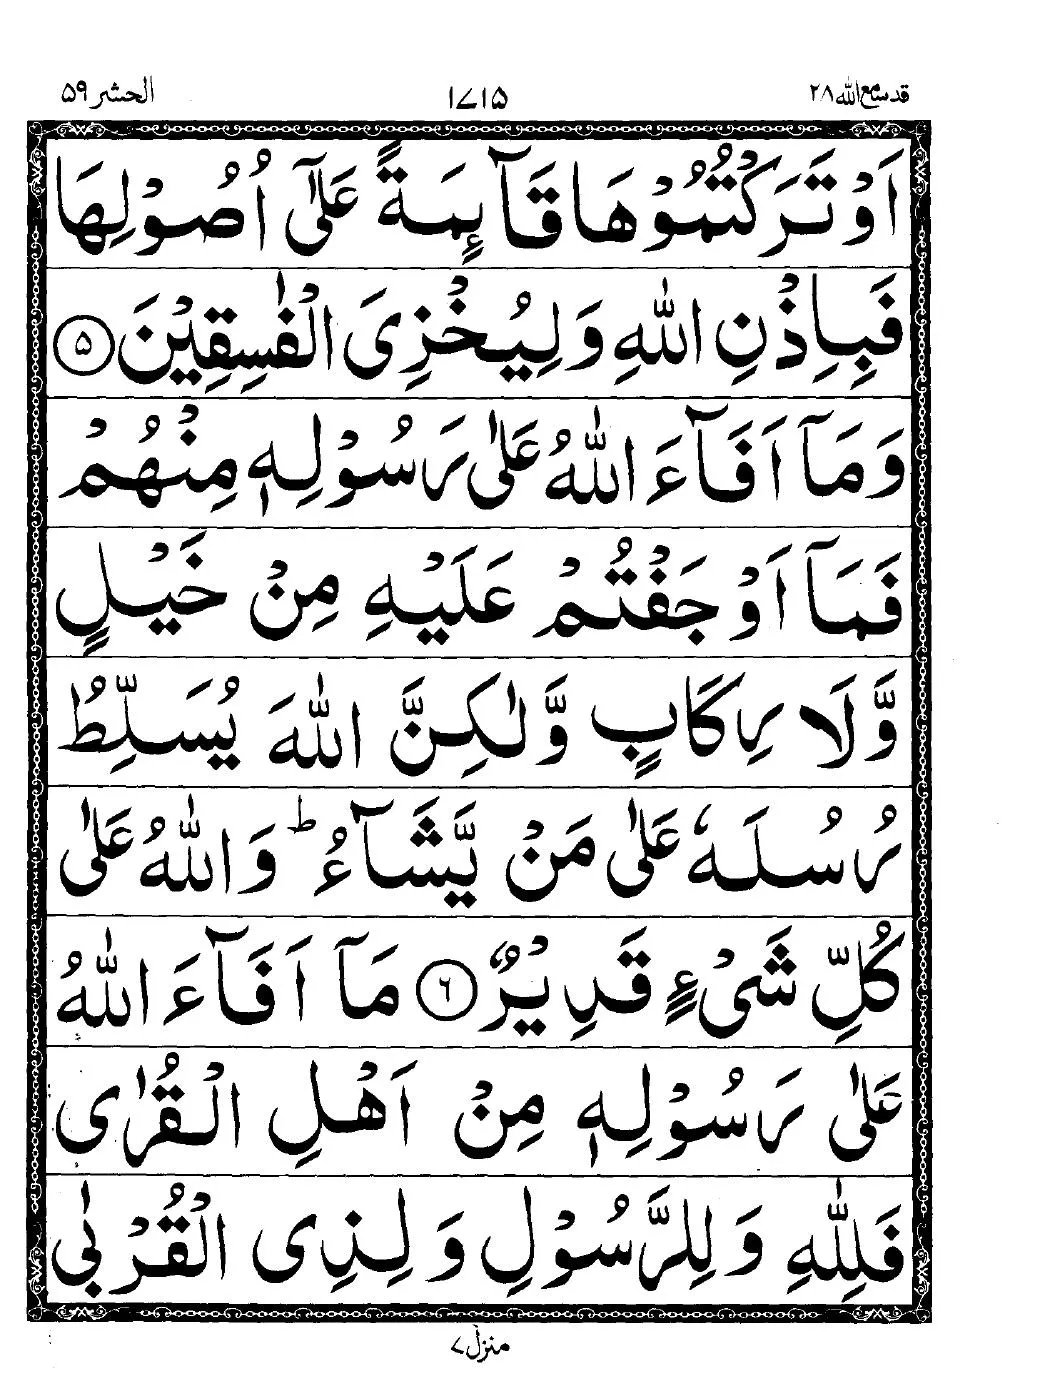 قد سمع الله ٢٨
١٧١٥
الحشر ٥٩
اَوْ تَرَكْتُمُوْهَا قَآئِمَةً عَلٰٓى اُصُوْلِهَا
فَبِاِذْنِ اللّٰهِ وَلِيُخْزِىَ الْفٰسِقِيْنَ ۵
وَمَآ اَفَآءَ اللّٰهُ عَلٰى رَسُوْلِهٖ مِنْهُمْ
فَمَآ اَوْجَفْتُمْ عَلَيْهِ مِنْ خَيْلٍ
وَّلَا رِكَابٍ وَّلٰكِنَّ اللّٰهَ يُسَلِّطُ
رُسُلَهٗ عَلٰى مَنْ يَّشَآءُ ؕ وَاللّٰهُ عَلٰى
كُلِّ شَىْءٍ قَدِيْرٌ ۶ مَآ اَفَآءَ اللّٰهُ
عَلٰى رَسُوْلِهٖ مِنْ اَهْلِ الْقُرٰى
فَلِلّٰهِ وَلِلرَّسُوْلِ وَلِذِى الْقُرْبٰى
منزل ٧